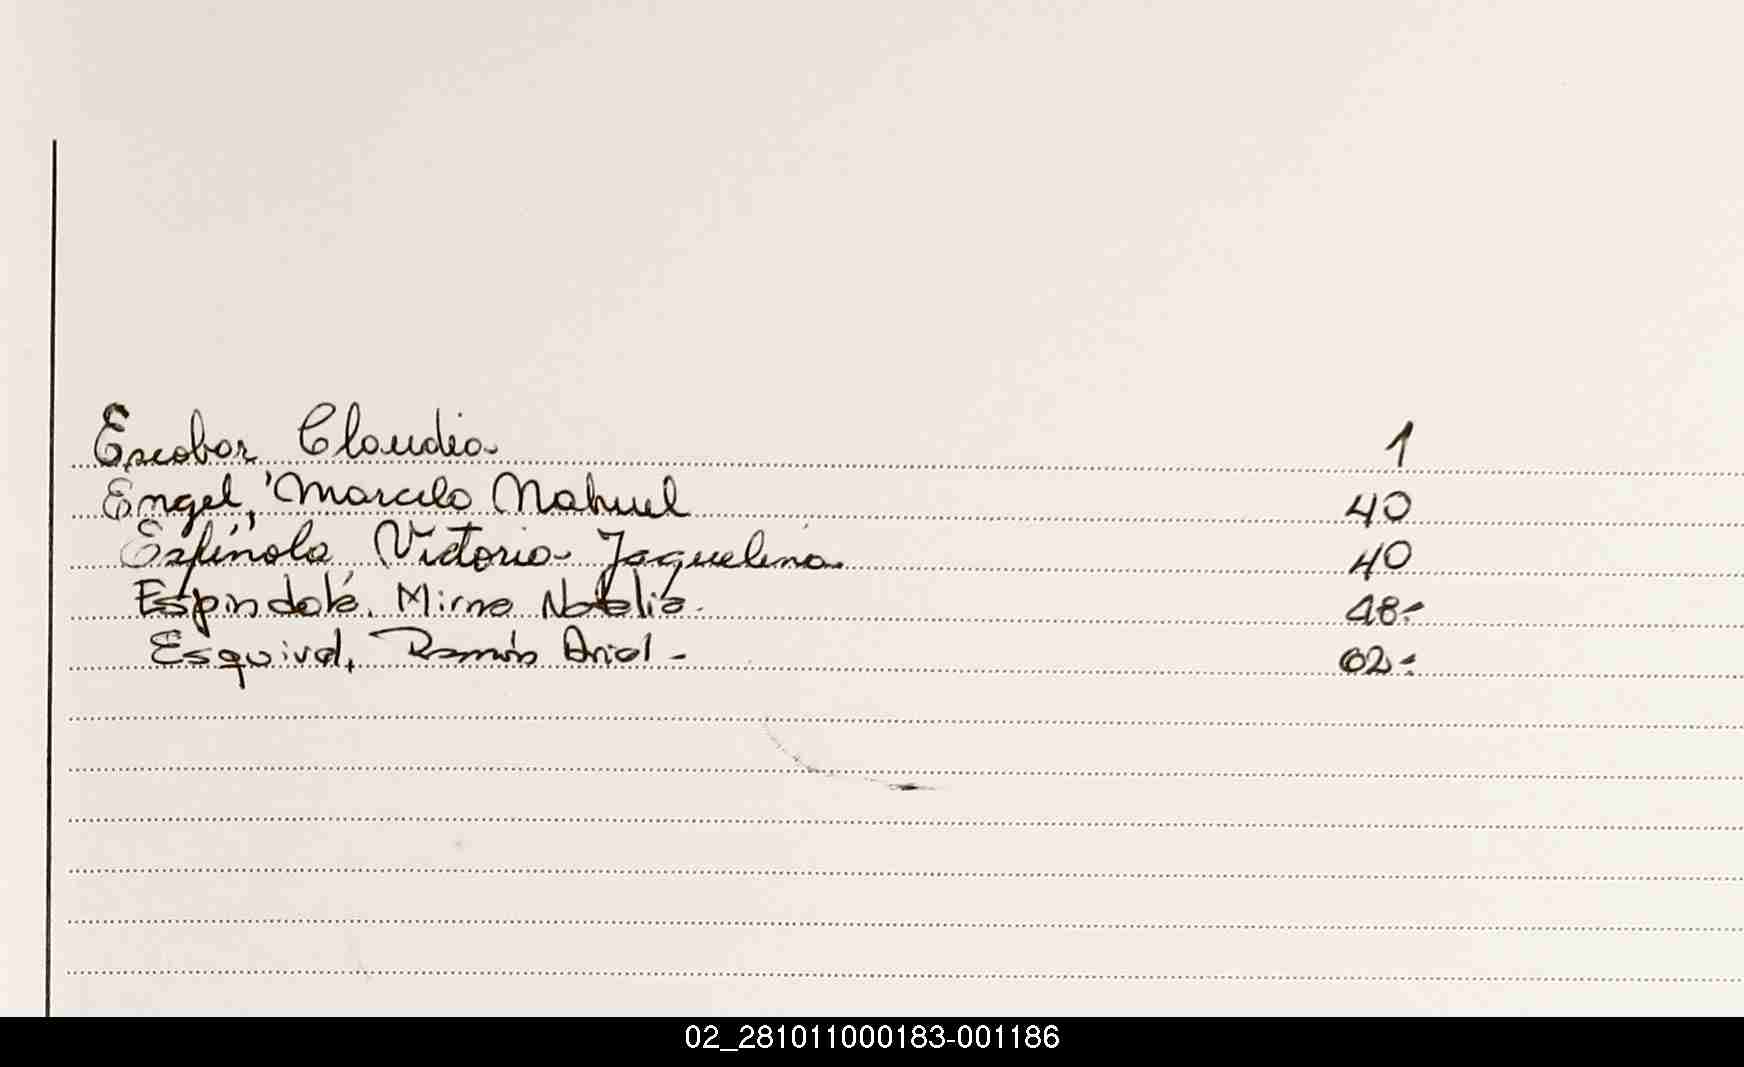 Escobar Claudia 1
Engel, Marcelo Nahuel 40
Espínola Victoria Jaquelina 40
Espindolé. Mirna Natalia. 48.-
Esquivel, Ramón Ariel - 62.-
02_281011000183-001186